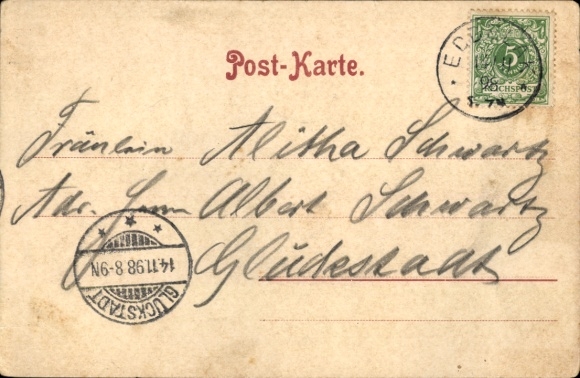 Post-Karte.
5
REICHSPOST
98
5-7N
Fräulein Alitha Schwartz
Adr. Herrn Albert Schwartz
Glückstadt
14.11.98.8-9N
GLÜCKSTADT